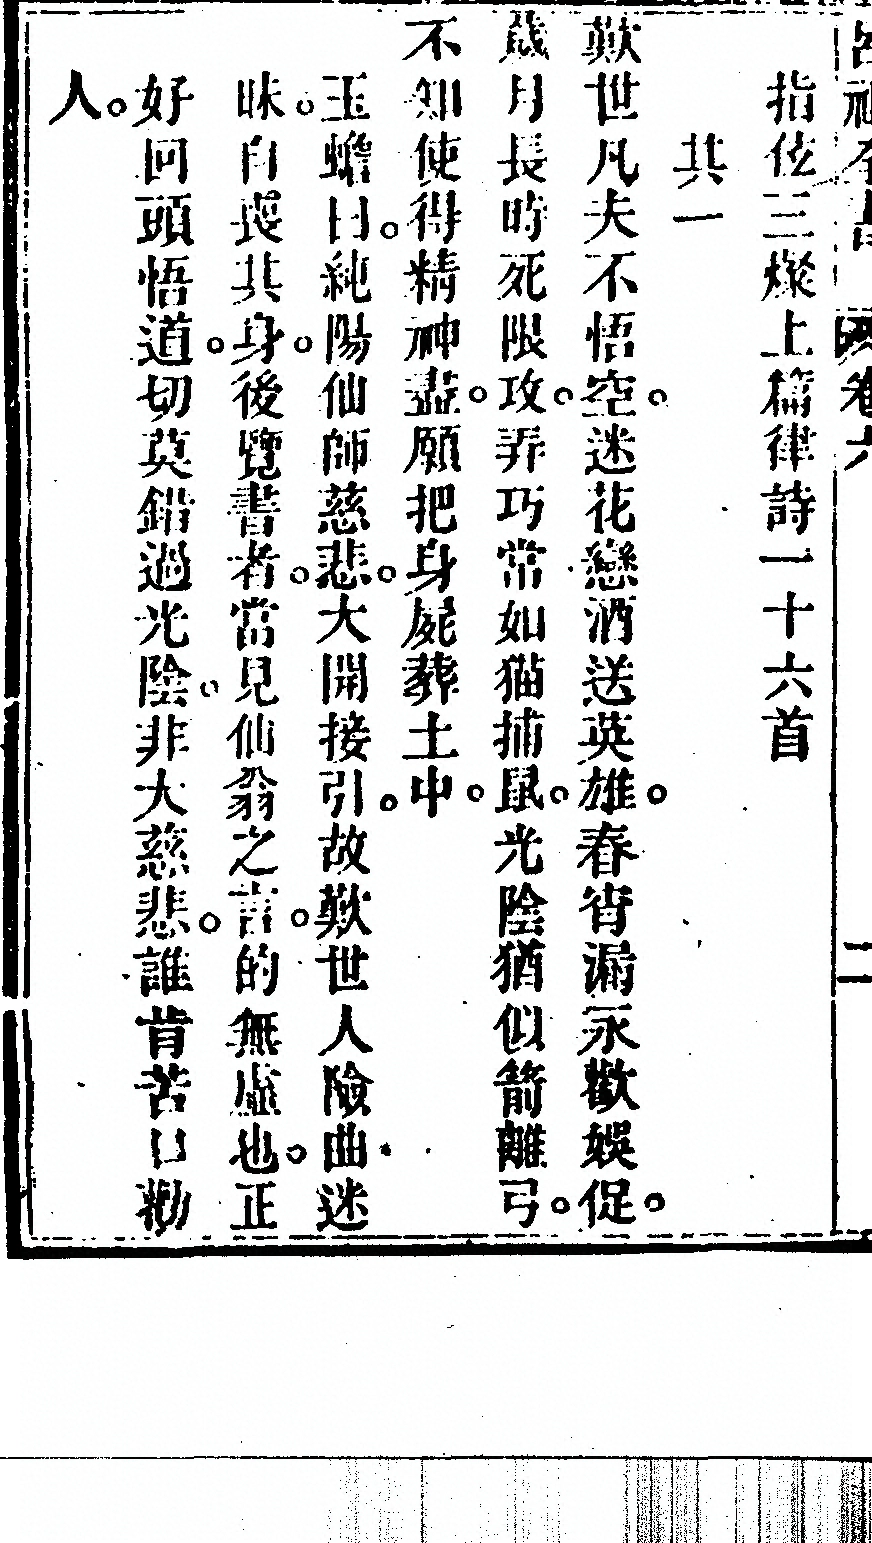 呂祖全書 卷六 二
指伭三燦上篇律詩一十六首
其一
歎世凡夫不悟空。迷花戀酒送英雄。春宵漏永歡娛促。
歲月長時死限攻。弄巧常如猫捕鼠。光陰猶似箭離弓。
不知使得精神盡。願把身屍葬土中。
玉蟾曰。純陽仙師慈悲。大開接引。故歎世人險曲迷
昧。自喪其身。後覽書者。當見仙翁之言。的無虛也。正
好回頭悟道。切莫錯過光陰。非大慈悲。誰肯苦口勸
人。